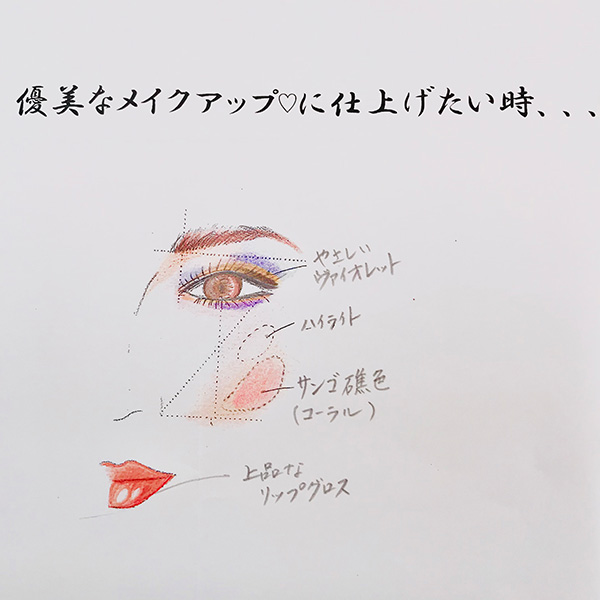 優美なメイクアップ♡に仕上げたい時、、、
やさしい
ヴァイオレット
ハイライト
サンゴ礁色
(コーラル)
上品な
リップグロス